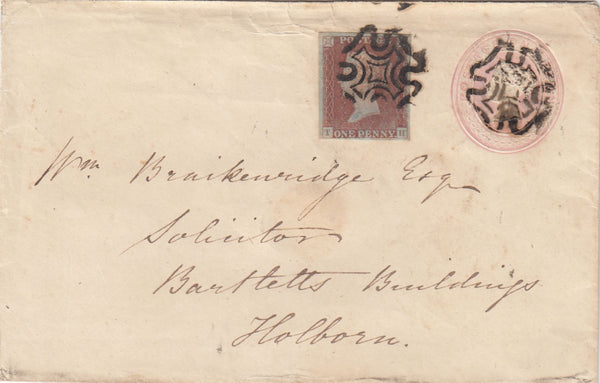 POSTAGE
ONE PENNY
Wm Braikenridge Esq
Solicitor
Bartletts Buildings
Holborn.